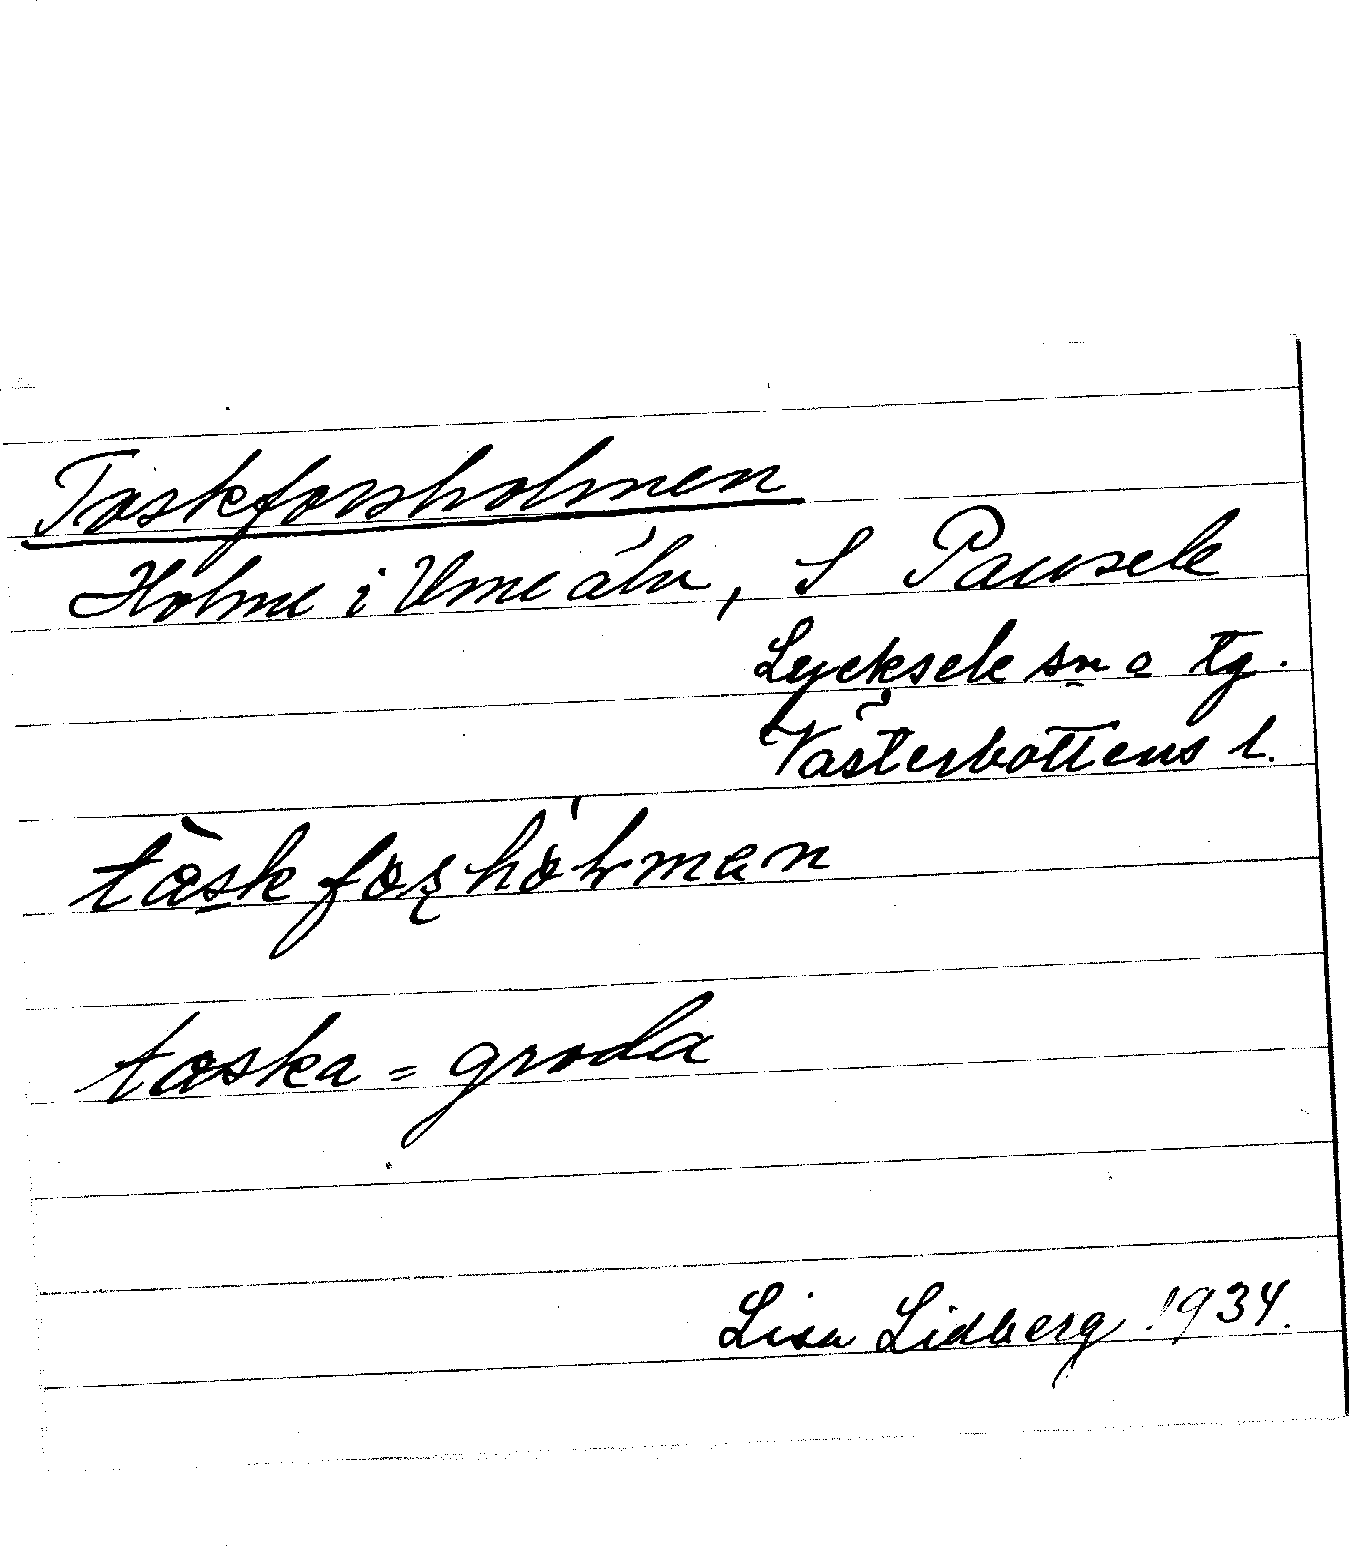 Taskforsholmen
Holme i Ume älv, S Pausele
Lycksele sn o tg.
Västerbottens l.
taska = groda
Lisa Lidberg 1934.